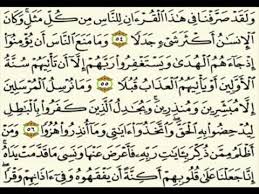 ولقد صرفنا في هذا القرءان للناس من كل مثل وكان
الإنسان أكثر شيء جدلا ٥٤ وما منع الناس أن يؤمنوا
إذ جاءهم الهدى ويستغفروا ربهم إلا أن تأتيهم سنة
الأولين أو يأتيهم العذاب قبلا ٥٥ وما نرسل المرسلين
إلا مبشرين ومنذرين ويجدل الذين كفروا بالبطل
ليدحضوا به الحق واتخذوا ءايتي وما أنذروا هزوا ٥٦ ومن
أظلم ممن ذكر بءايت ربه فأعرض عنها ونسي ما قدمت يداه
إنا جعلنا على قلوبهم أكنة أن يفقهوه وفي ءاذانهم وقرا